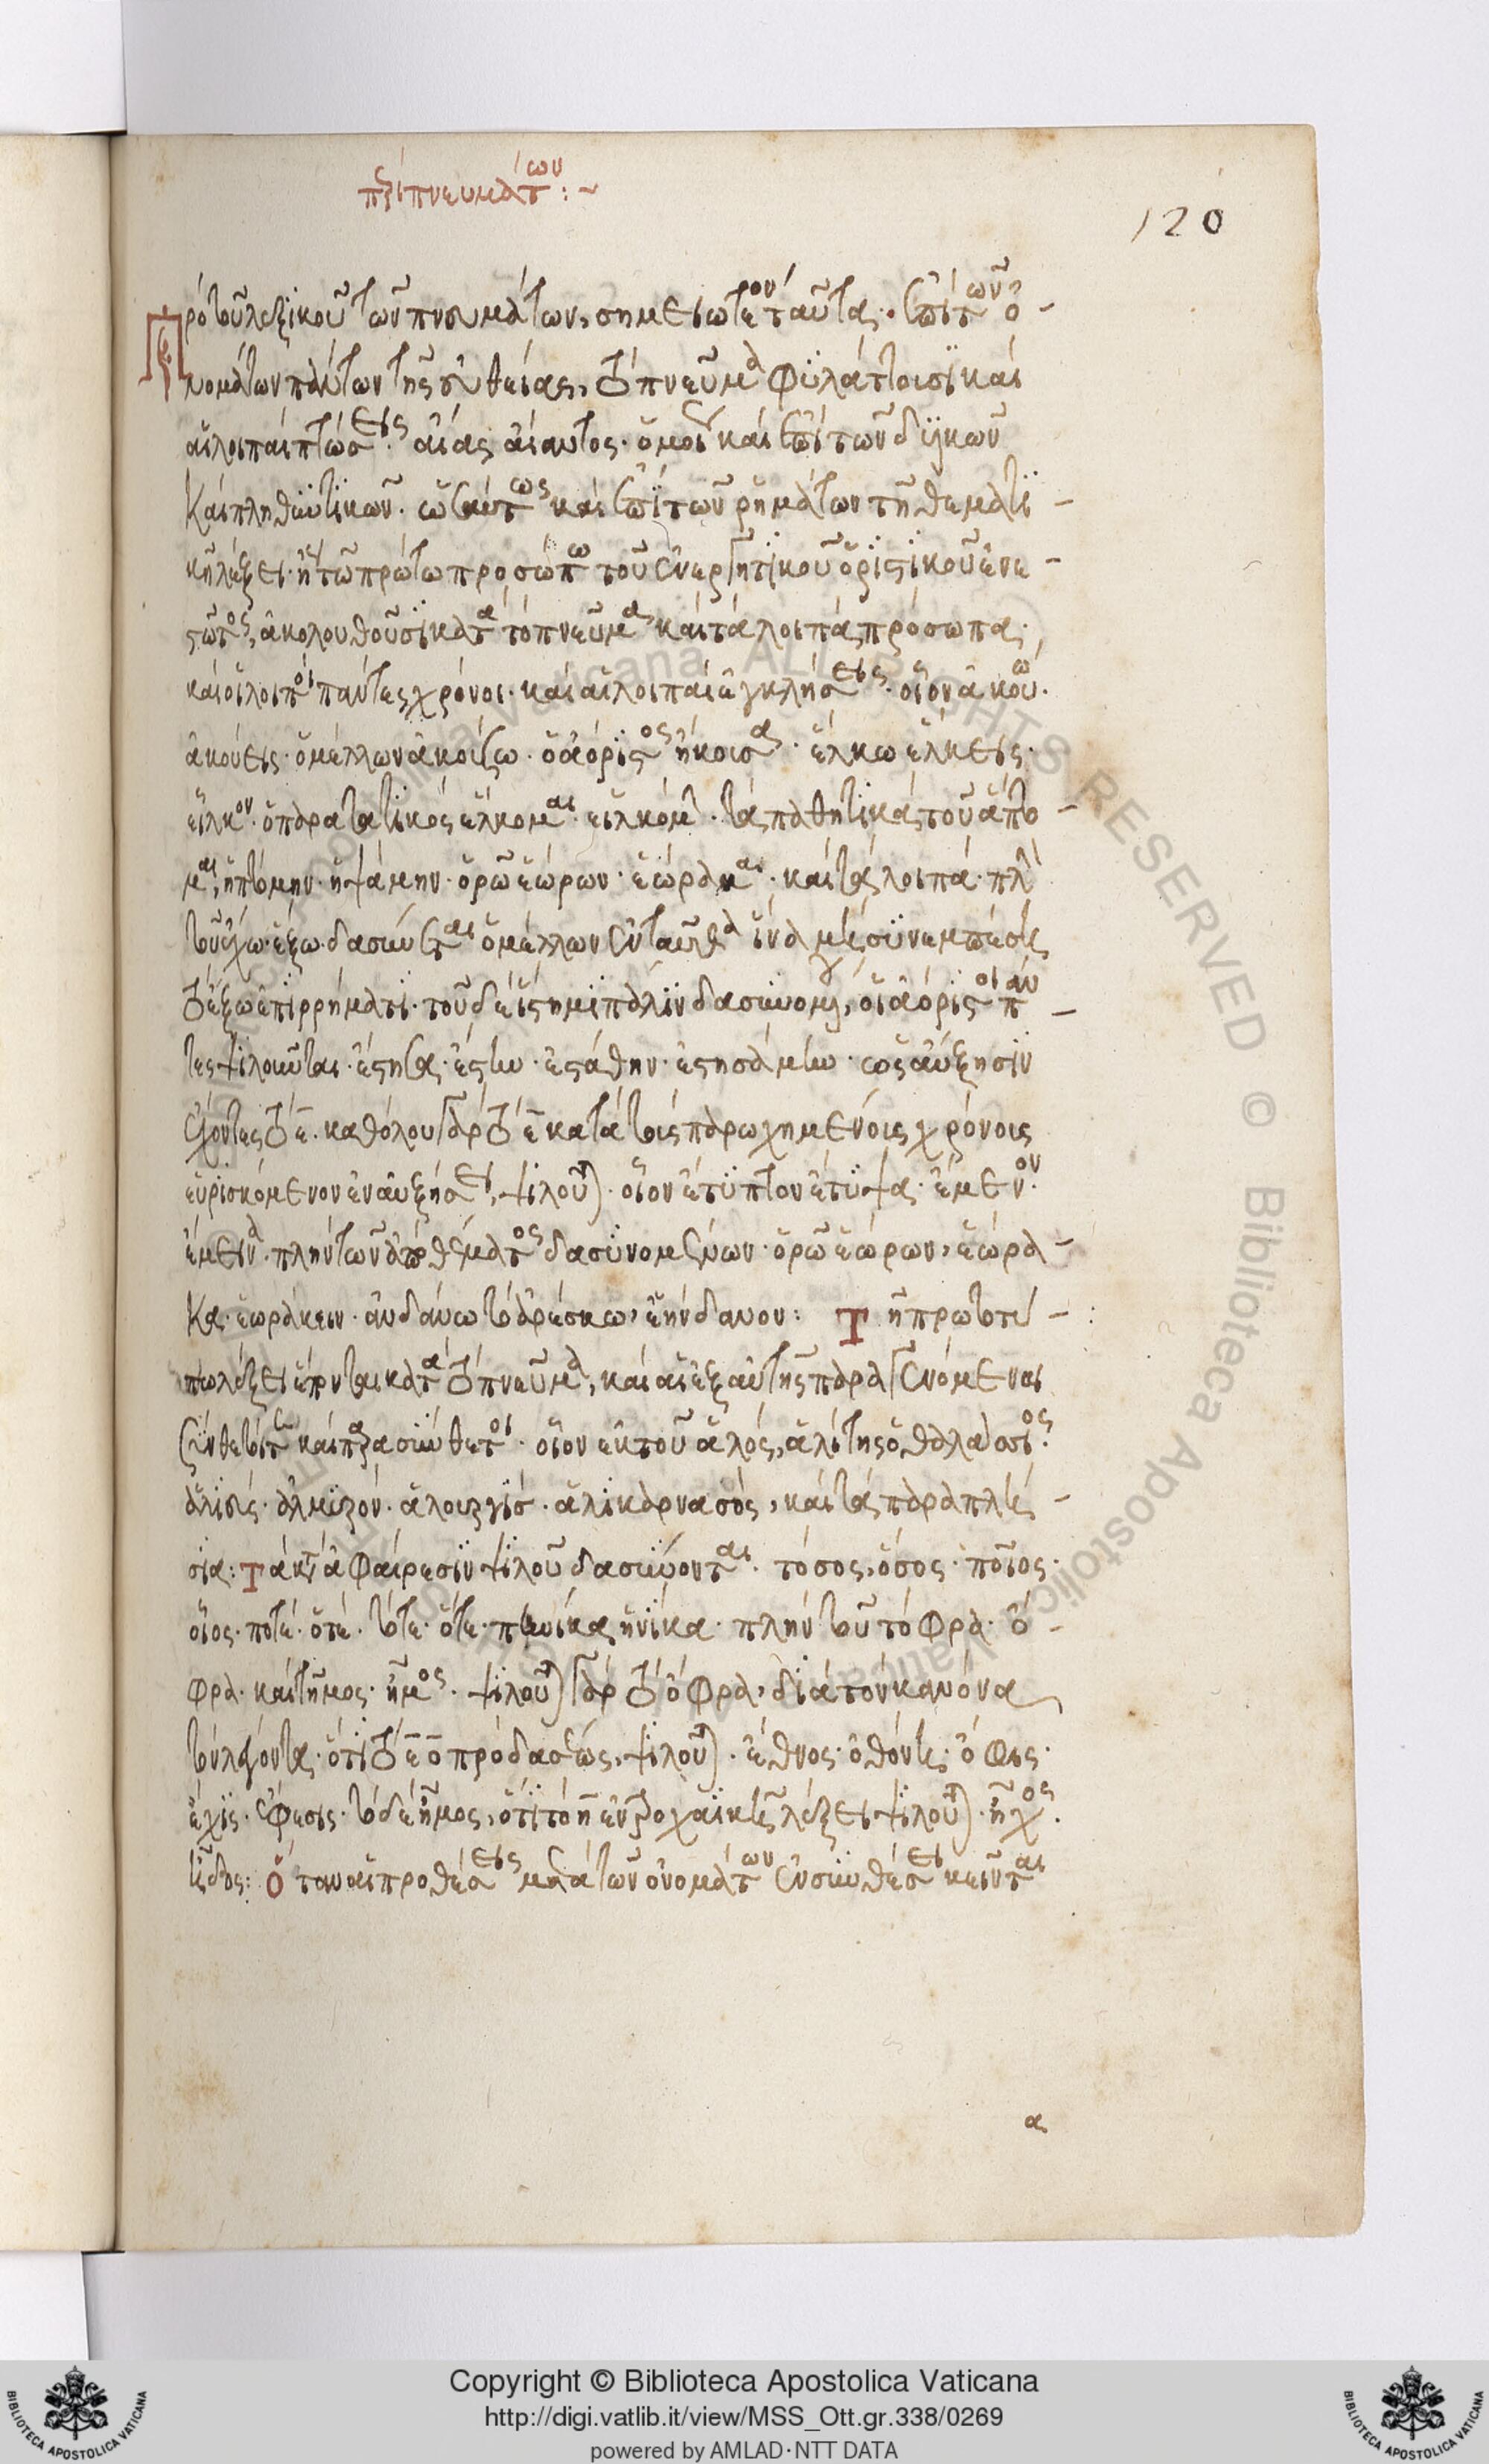 περὶ πνευμάτων :~
120
Πρὸ τοῦ λεξικοῦ τῶν πνευμάτων, σημειωτέον ταῦτα. ἐπὶ τῶν ὀ-
νομάτων πάντων τῆς εὐθείας, τὸ πνεῦμα φυλάττουσι καὶ
αἱ λοιπαὶ πτώσεις. αἴας αἴαντος. ὁμοίως καὶ ἐπὶ τῶν δυϊκῶν
καὶ πληθυντικῶν. ὡσαύτως καὶ ἐπὶ τῶν ῥημάτων τῇ θεματι-
κῇ λέξει. ἢ τῷ πρώτω προσώπω τοῦ ἐνεργητικοῦ ὁριστικοῦ ἐνε-
στῶτος, ἀκολουθοῦσι κατὰ τὸ πνεῦμα καὶ τὰ λοιπὰ πρόσωπα.
καὶ οἱ λοιποὶ πάντες χρόνοι. καὶ αἱ λοιπαὶ ἐγκλήσεις. οἷον ἀκούω.
ἀκούεις. ὁ μέλλων ἀκούσω. ὁ ἀόριστος ἤκουσα. ἕλκω ἕλκεις.
εἷλκον. ὁ παρατατικὸς ἕλκομαι. εἱλκόμ. τὰ παθητικὰ τοῦ ἅπτο-
μαι, ἡπτόμην. ἡψάμην. ὁρῶ ἑώρων. ἑώρακα. καὶ τὰ λοιπά. πλὴν
τοῦ ἔχω. ἕξω. δασύνεται ὁ μέλλων ἐνταῦθα ἵνα μὴ συνεμπέση
τὸ ἔξω ἐπιρρήματι. τοῦ δὲ ἵστημι πάλιν δασυνομένου, οἱ ἀόριστοι πάν-
τες ψιλοῦνται. ἔστησα. ἔστην. ἐστάθην. ἐστησάμην. ὡς αὔξησιν
ἔχοντες τὸ ε. καθόλου γὰρ τὸ ε κατὰ τοὺς παρωχημένους χρόνους
εὑρισκόμενον ἐν αὐξήσει, ψιλοῦται. οἷον ἔτυπτον ἔτυψα. ἔμενον.
ἔμεινα. πλὴν τῶν ἀπὸ θέματος δασυνομένων. ὁρῶ ἑώρων, ἑώρα-
κα. ἑωράκειν. ἁνδάνω τὸ ἀρέσκω, ἑήνδανον: Τῆ πρωτοτύ-
πω λέξει ἕπονται κατὰ τὸ πνεῦμα, καὶ αἱ ἐξ αὐτῆς παραγενόμεναι
σύνθετοί τε καὶ παρασύνθετοι. οἷον ἐκ τοῦ ἁλός, ἁλίτης ὁ θαλάσσιος.
ἁλιεύς. ἁλμυρόν. ἁλουργίς. ἁλικαρνασός, καὶ τὰ παραπλή-
σια: Τὰ κατὰ ἀφαίρεσιν ψιλοῦ δασύνονται. τόσος, ὅσος. ποῖος.
οἷος. ποτέ. ὁτέ. τότε. ὅτε. πηνίκα, ἡνίκα. πλὴν τοῦ τόφρα. ὄ-
φρα. καὶ τῆμος. ἦμος. ψιλοῦται γὰρ τὸ ὄφρα, διὰ τὸν κανόνα
τὸν λέγοντα. ὅτι τὸ ε ο πρὸ δασέως, ψιλοῦται. ἔθνος. ὀθόνη. ὄφις.
ἔχις. ἔφεσις. τὸ δὲ ἦμος, ὅτι τὸ η ἐν τροχαϊκῇ λέξει ψιλοῦται. ἦχος.
ἦδος: Ὅταν αἱ προθέσεις μετὰ τῶν ὀνομάτων ἐν συνθέσει κεῖνται
α
Copyright © Biblioteca Apostolica Vaticana
http://digi.vatlib.it/view/MSS_Ott.gr.338/0269
powered by AMLAD·NTT DATA